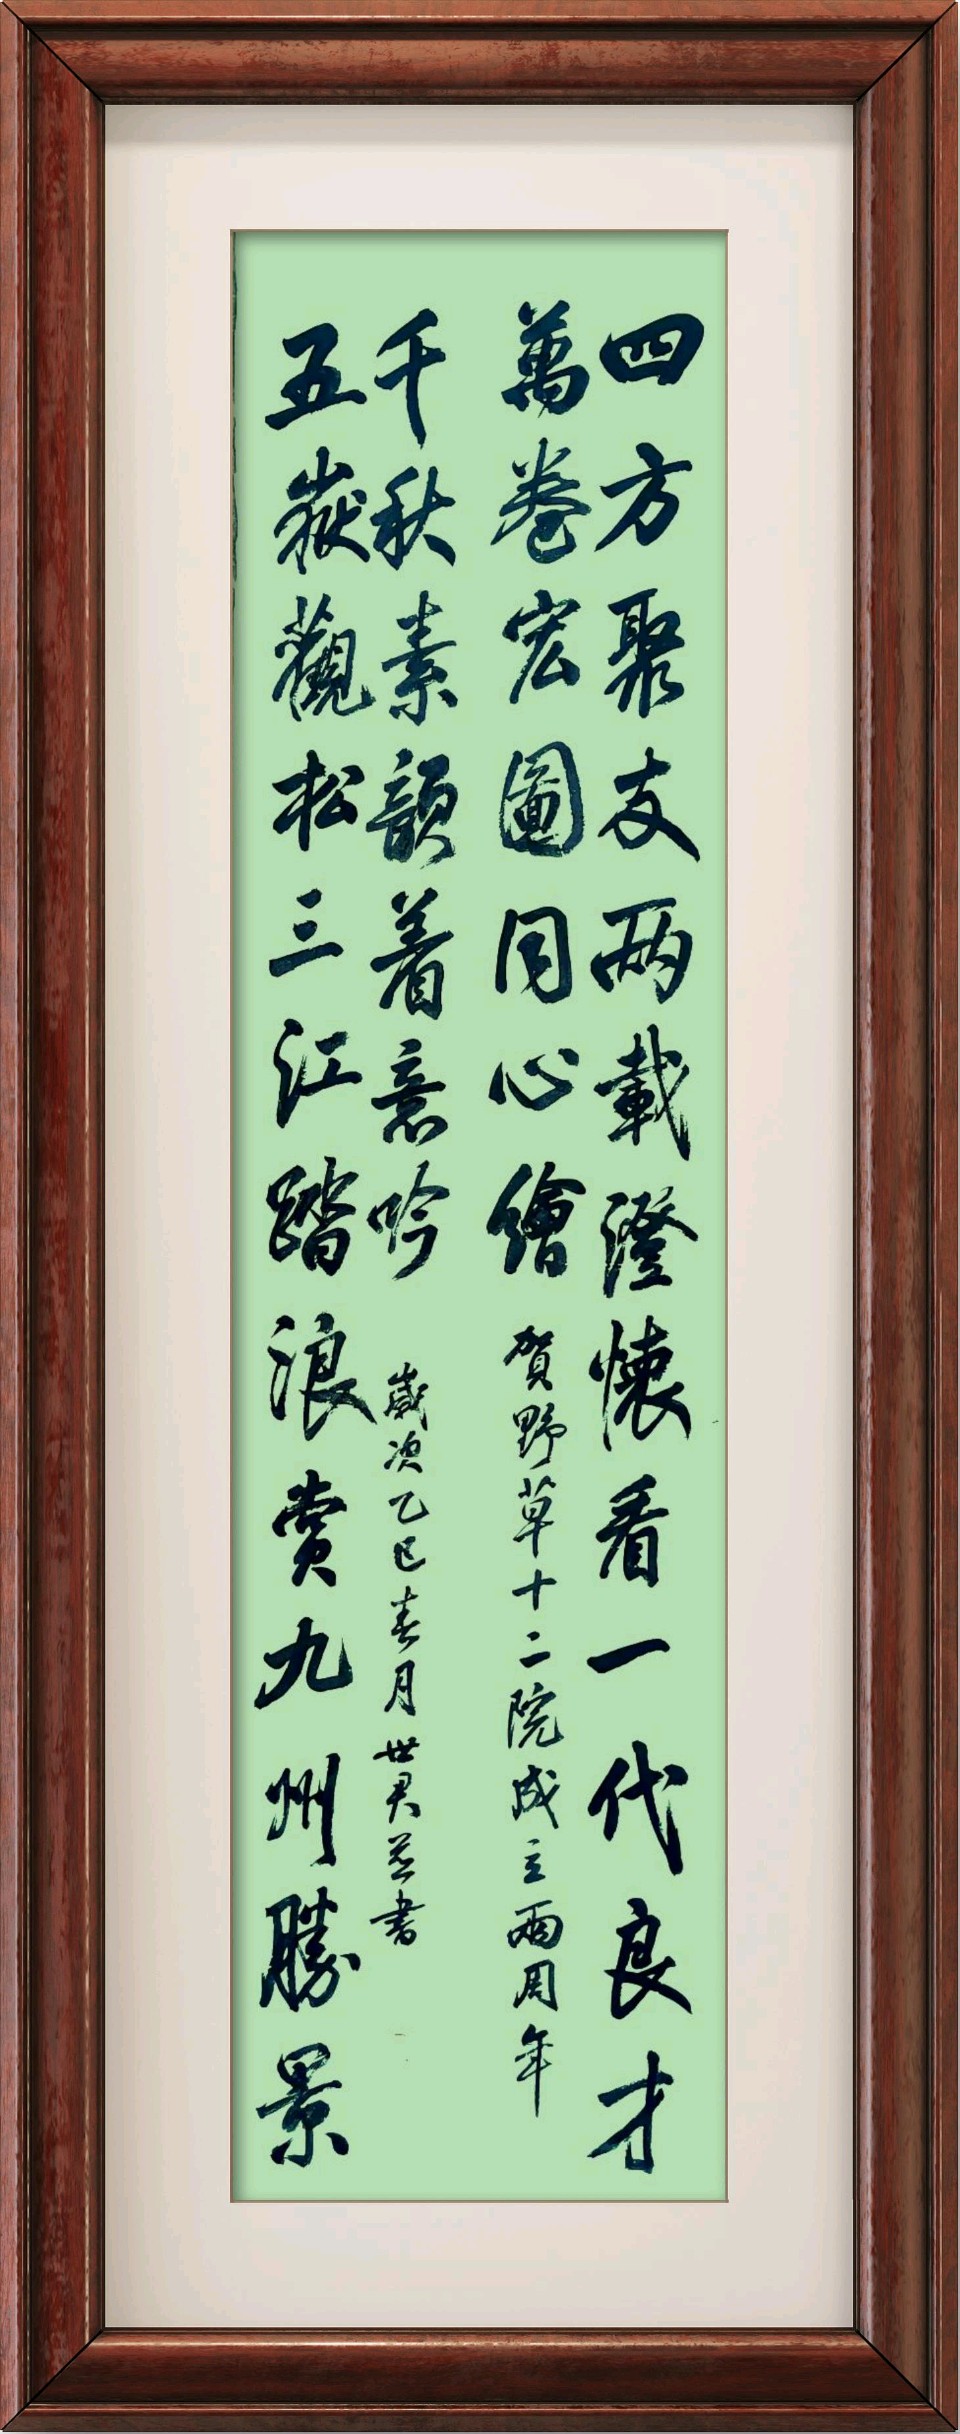 四方聚友两載澄懷看一代良才
萬卷宏圖同心繪 賀野草十二院成立兩周年
五嶽觀松三江踏浪賞九州勝景
千秋素韻着意吟 歲次乙巳春月 世君并書